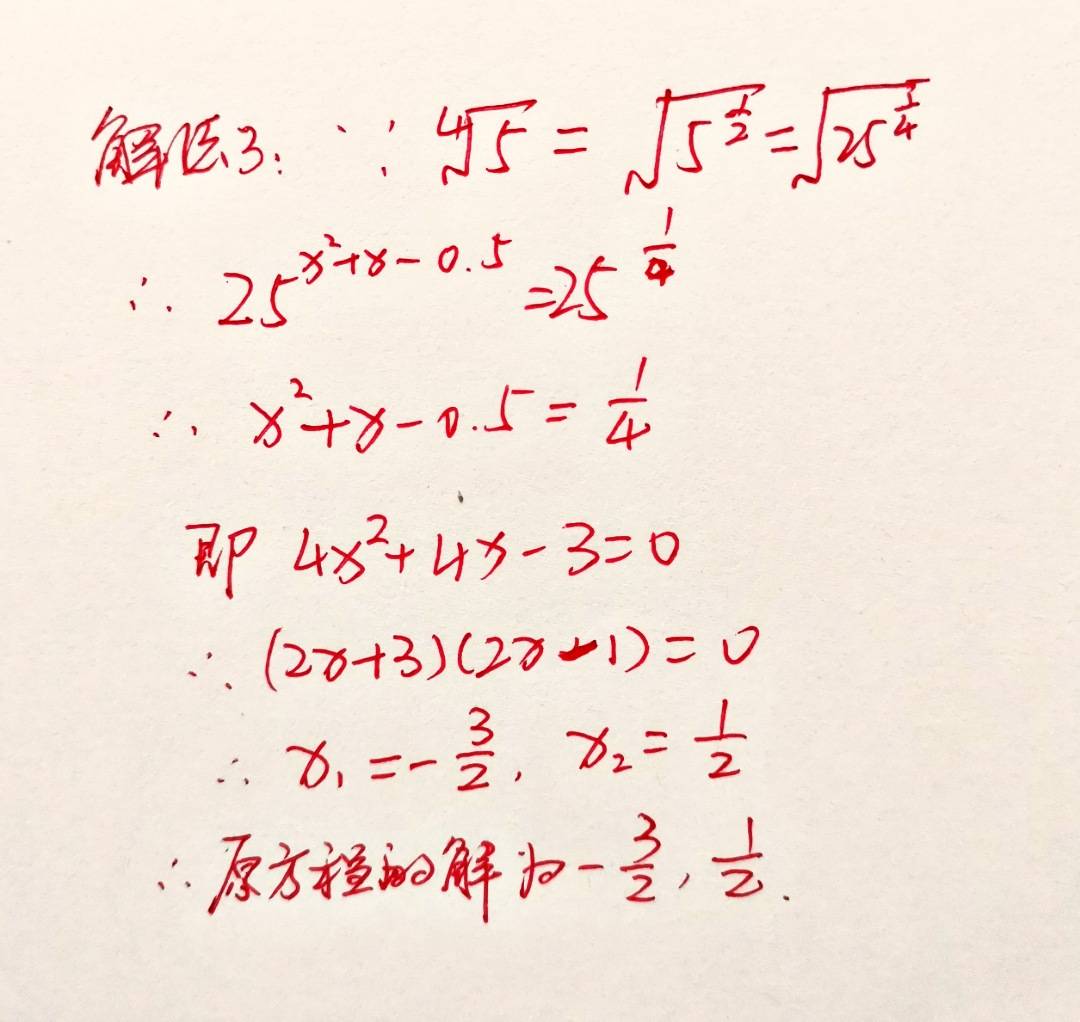 解法3: ∵ ⁴√5 = √(5^(1/2)) = √(25^(1/4))
∴ 25^(x²+x-0.5) = 25^(1/4)
∴ x²+x-0.5 = 1/4
即 4x²+4x-3=0
∴ (2x+3)(2x-1)=0
∴ x₁=-3/2, x₂=1/2
∴ 原方程的解为-3/2, 1/2.